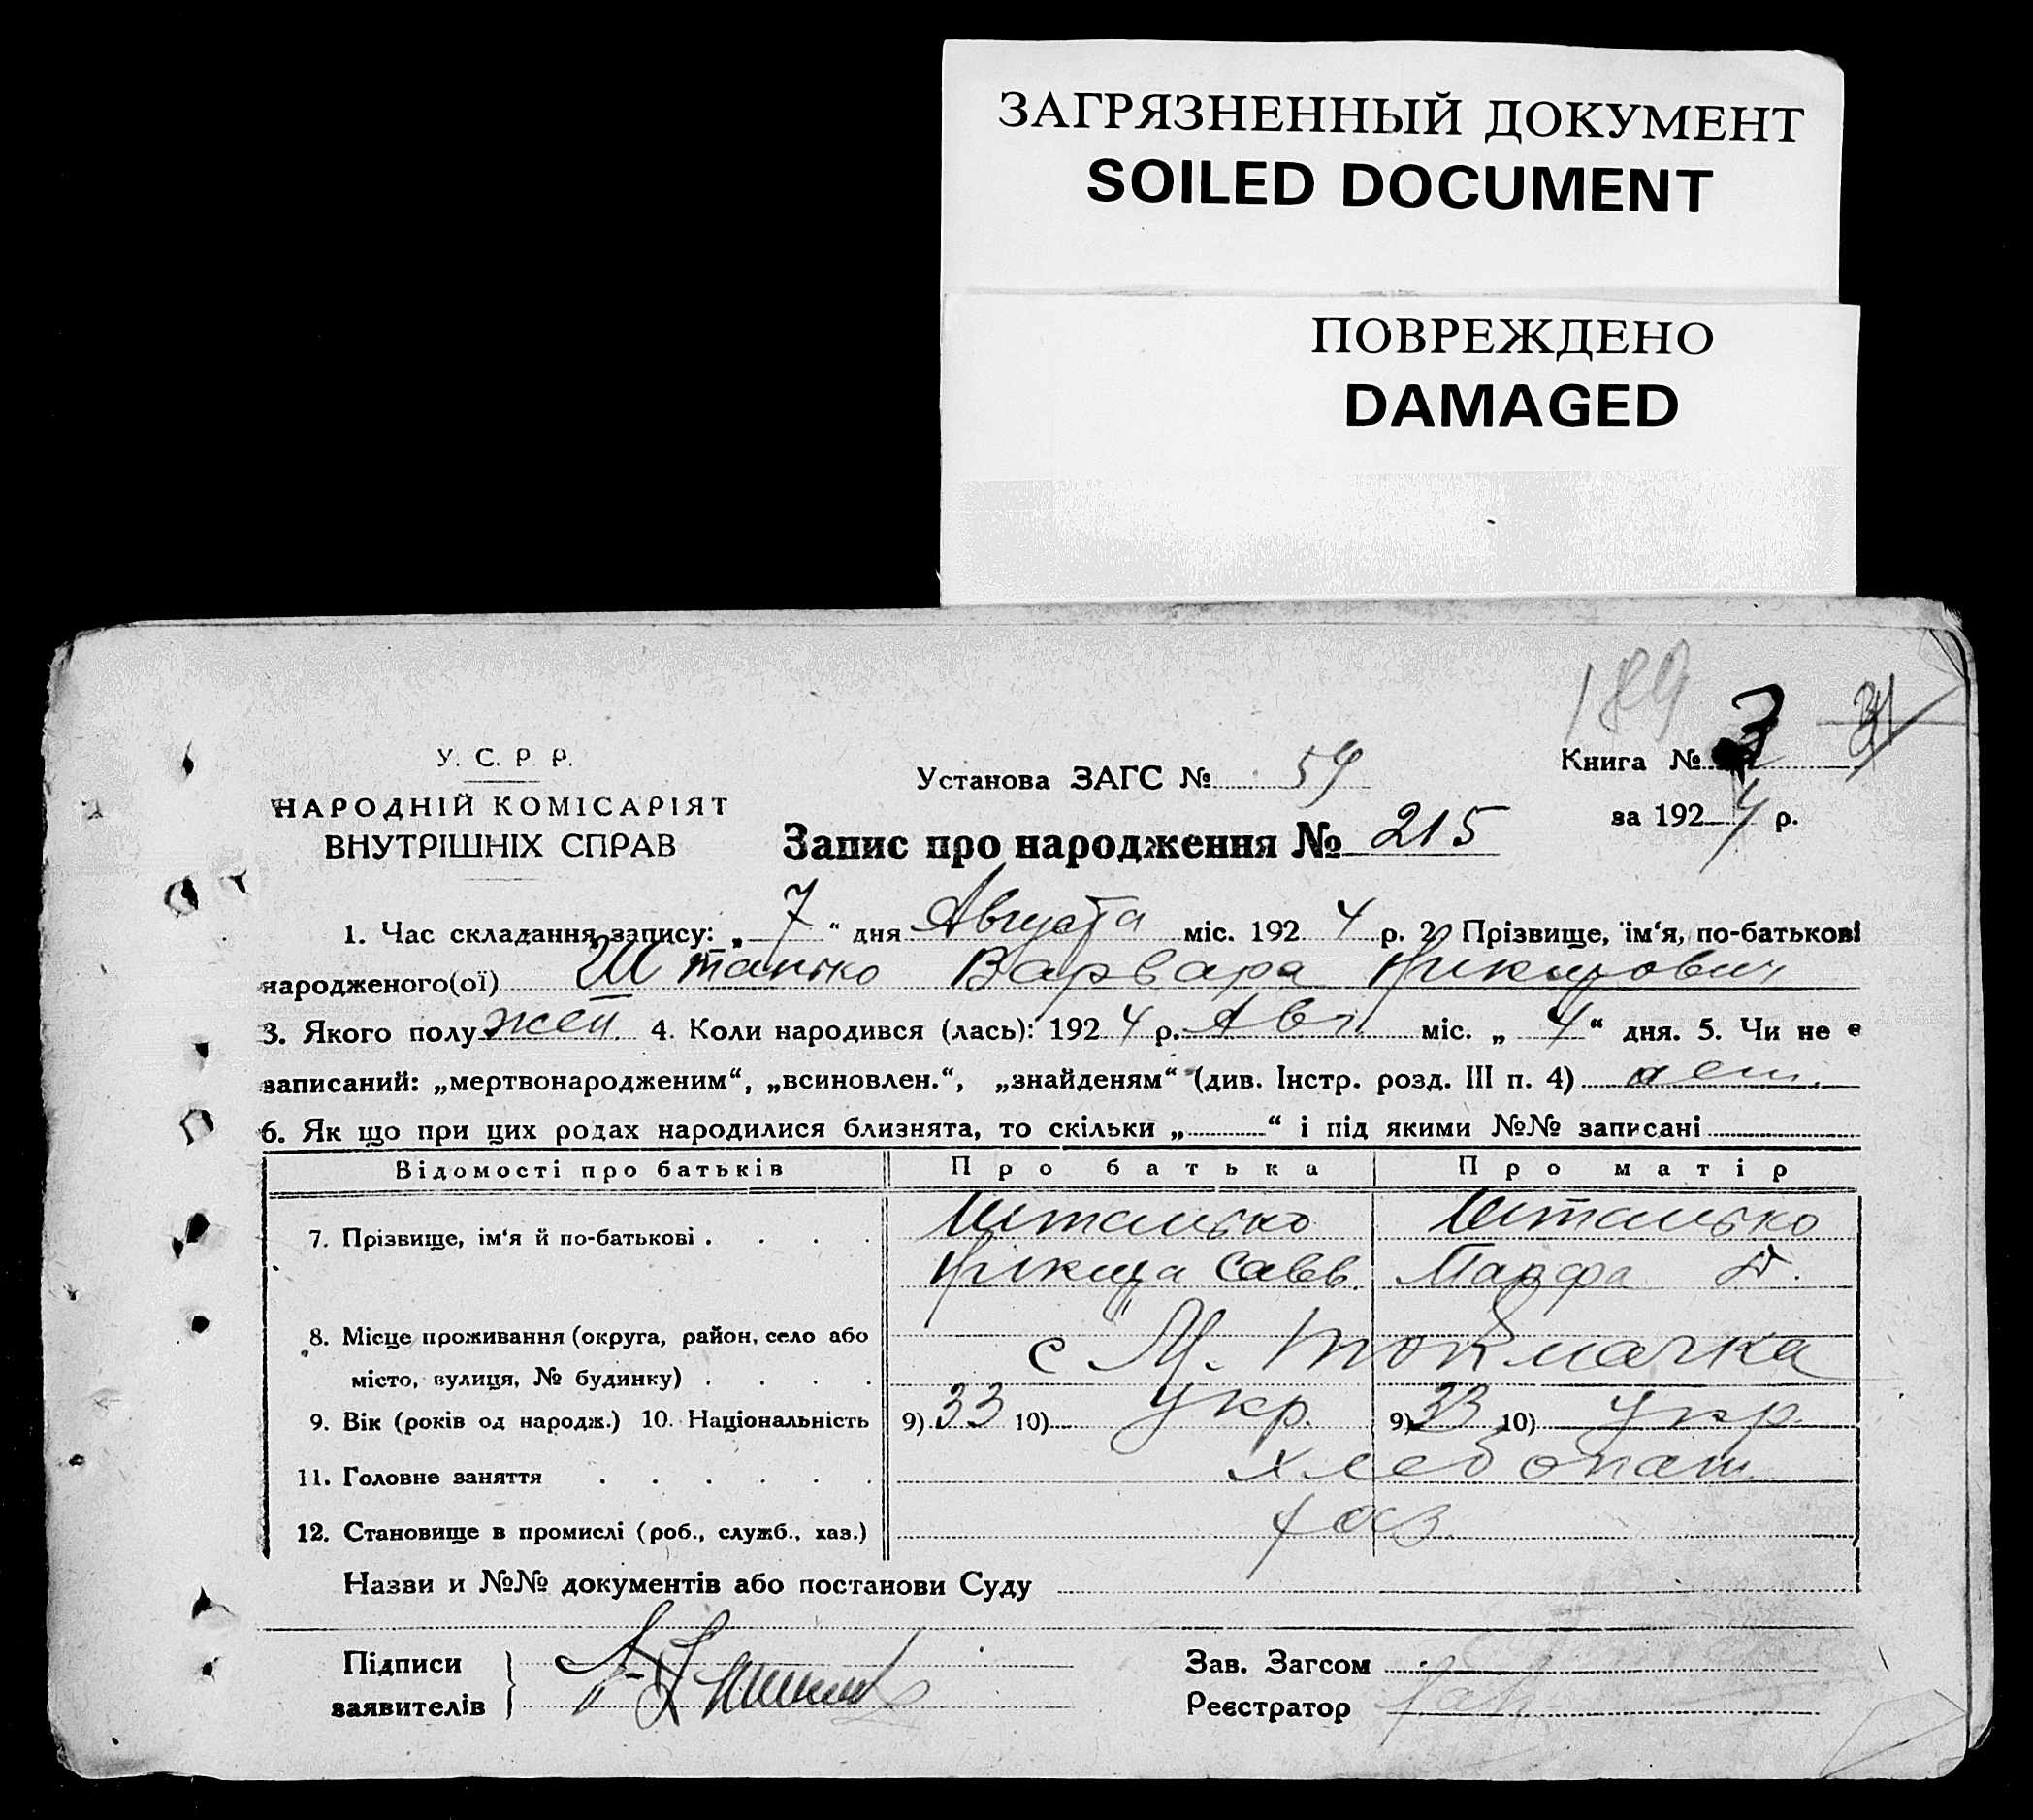 ЗАГРЯЗНЕННЫЙ ДОКУМЕНТ
SOILED DOCUMENT
ПОВРЕЖДЕНО
DAMAGED
189 3 31
У. С. Р. Р.
НАРОДНІЙ КОМІСАРІЯТ
ВНУТРІШНІХ СПРАВ
Установа ЗАГС № 59
Книга №
за 192 4 р.
Запис про народження № 215
1. Час складання запису: „ 7 “ дня Августа міс. 192 4 р. 2. Прізвище, ім‘я, по-батькові
народженого(ої) Штанько Варвара Никитович
3. Якого полу жен. 4. Коли народився (лась): 192 4 р. Авг. міс. „ 4 “ дня. 5. Чи не є
записаний: „мертвонародженим“, „всиновлен.“, „знайденям“ (див. Інстр. розд. III п. 4) нет.
6. Як що при цих родах народилися близнята, то скільки „ “ і під якими №№ записані
Відомості про батьків Про батька Про матір
7. Прізвище, ім‘я й по-батькові . . . . Штанько Штанько
Никита Савв. Марфа Д.
8. Місце проживання (округа, район, село або
с М. Токмачка
місто, вулиця, № будинку) . . . .
9. Вік (років од народж.) 10. Національність 9) 33 10) Укр. 9) 33 10) Укр.
11. Головне заняття . . . . . . хлебопаш.
12. Становище в промислі (роб., служб., хаз.) хоз.
Назви и №№ документів або постанови Суду
Підписи
заявителів
Зав. Загсом
Реєстратор